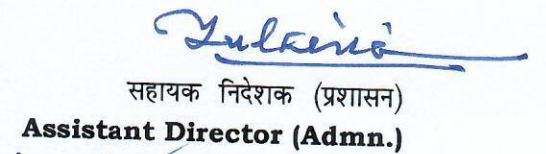 सहायक निदेशक (प्रशासन)
Assistant Director (Admn.)